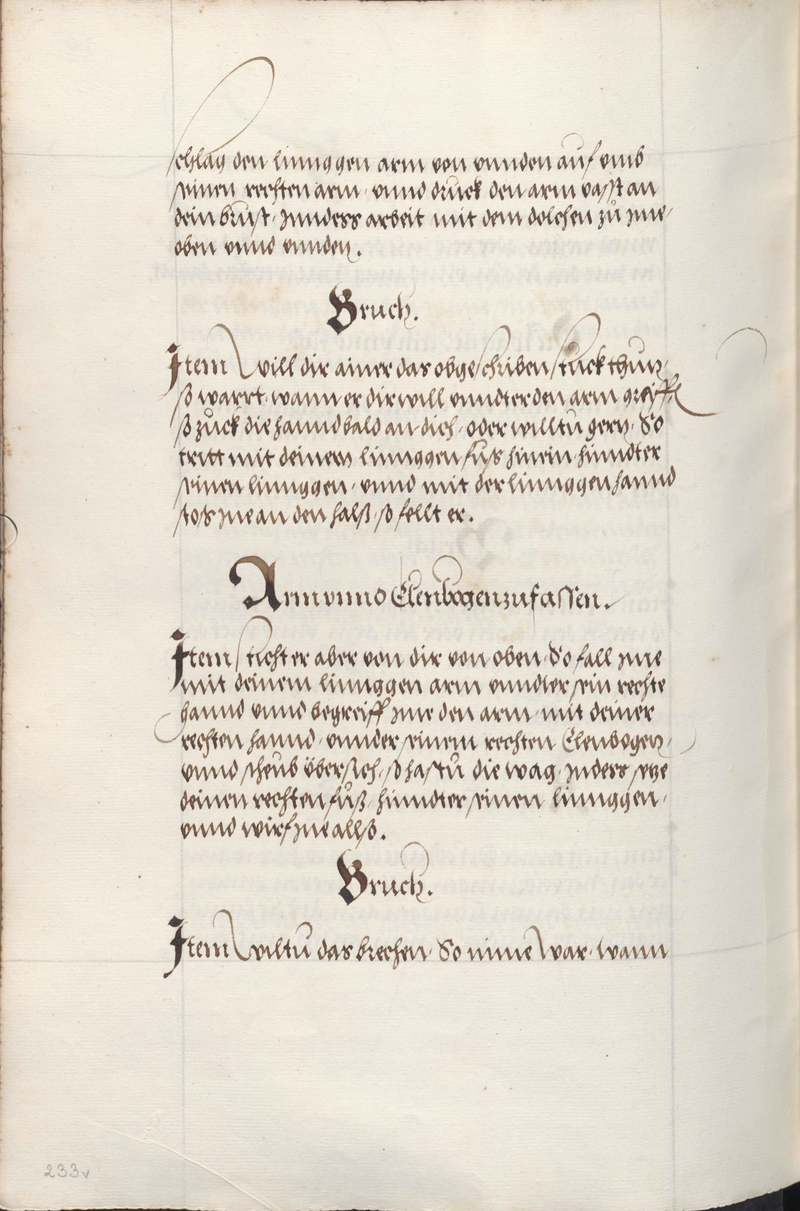 schlag den linnggen arm von vnnden auf vmb
seinen rechten arm, vnnd druck den arm vasst an
dein brust, Innders arbeit mit dem dolchen zu Ime,
oben vnnd vnnden.
Bruch.
Item Will dir ainer das obgeschriben stuck thun,
so warrt, wann er dir will vnndter den arm greiffn
so zuck die hannd bald an dich, oder willtu gern, So
tritt mit deinem linnggen fuss hinein hinndter
seinen linnggen, vnnd mit der linnggen hannd
stoss Ine an den halss, so fellt er.
Arm vnnd Elenbogen zufassen.
Item sticht er aber von dir von oben, So fall Ime
mit deinem linnggen arm vnndter sein rechte
hannd vnnd begreiff Ime den arm, mit deiner
rechten hannd, vnnder seinem rechten Elenbogen,
vnnd scheub übersich, so hastu die wag, Inders setze
deinen rechten fuß, hinndter seinen linnggen,
vnnd wirf Ine allso.
Bruch.
Item Wiltu das brechen, So nime War, wann
233v